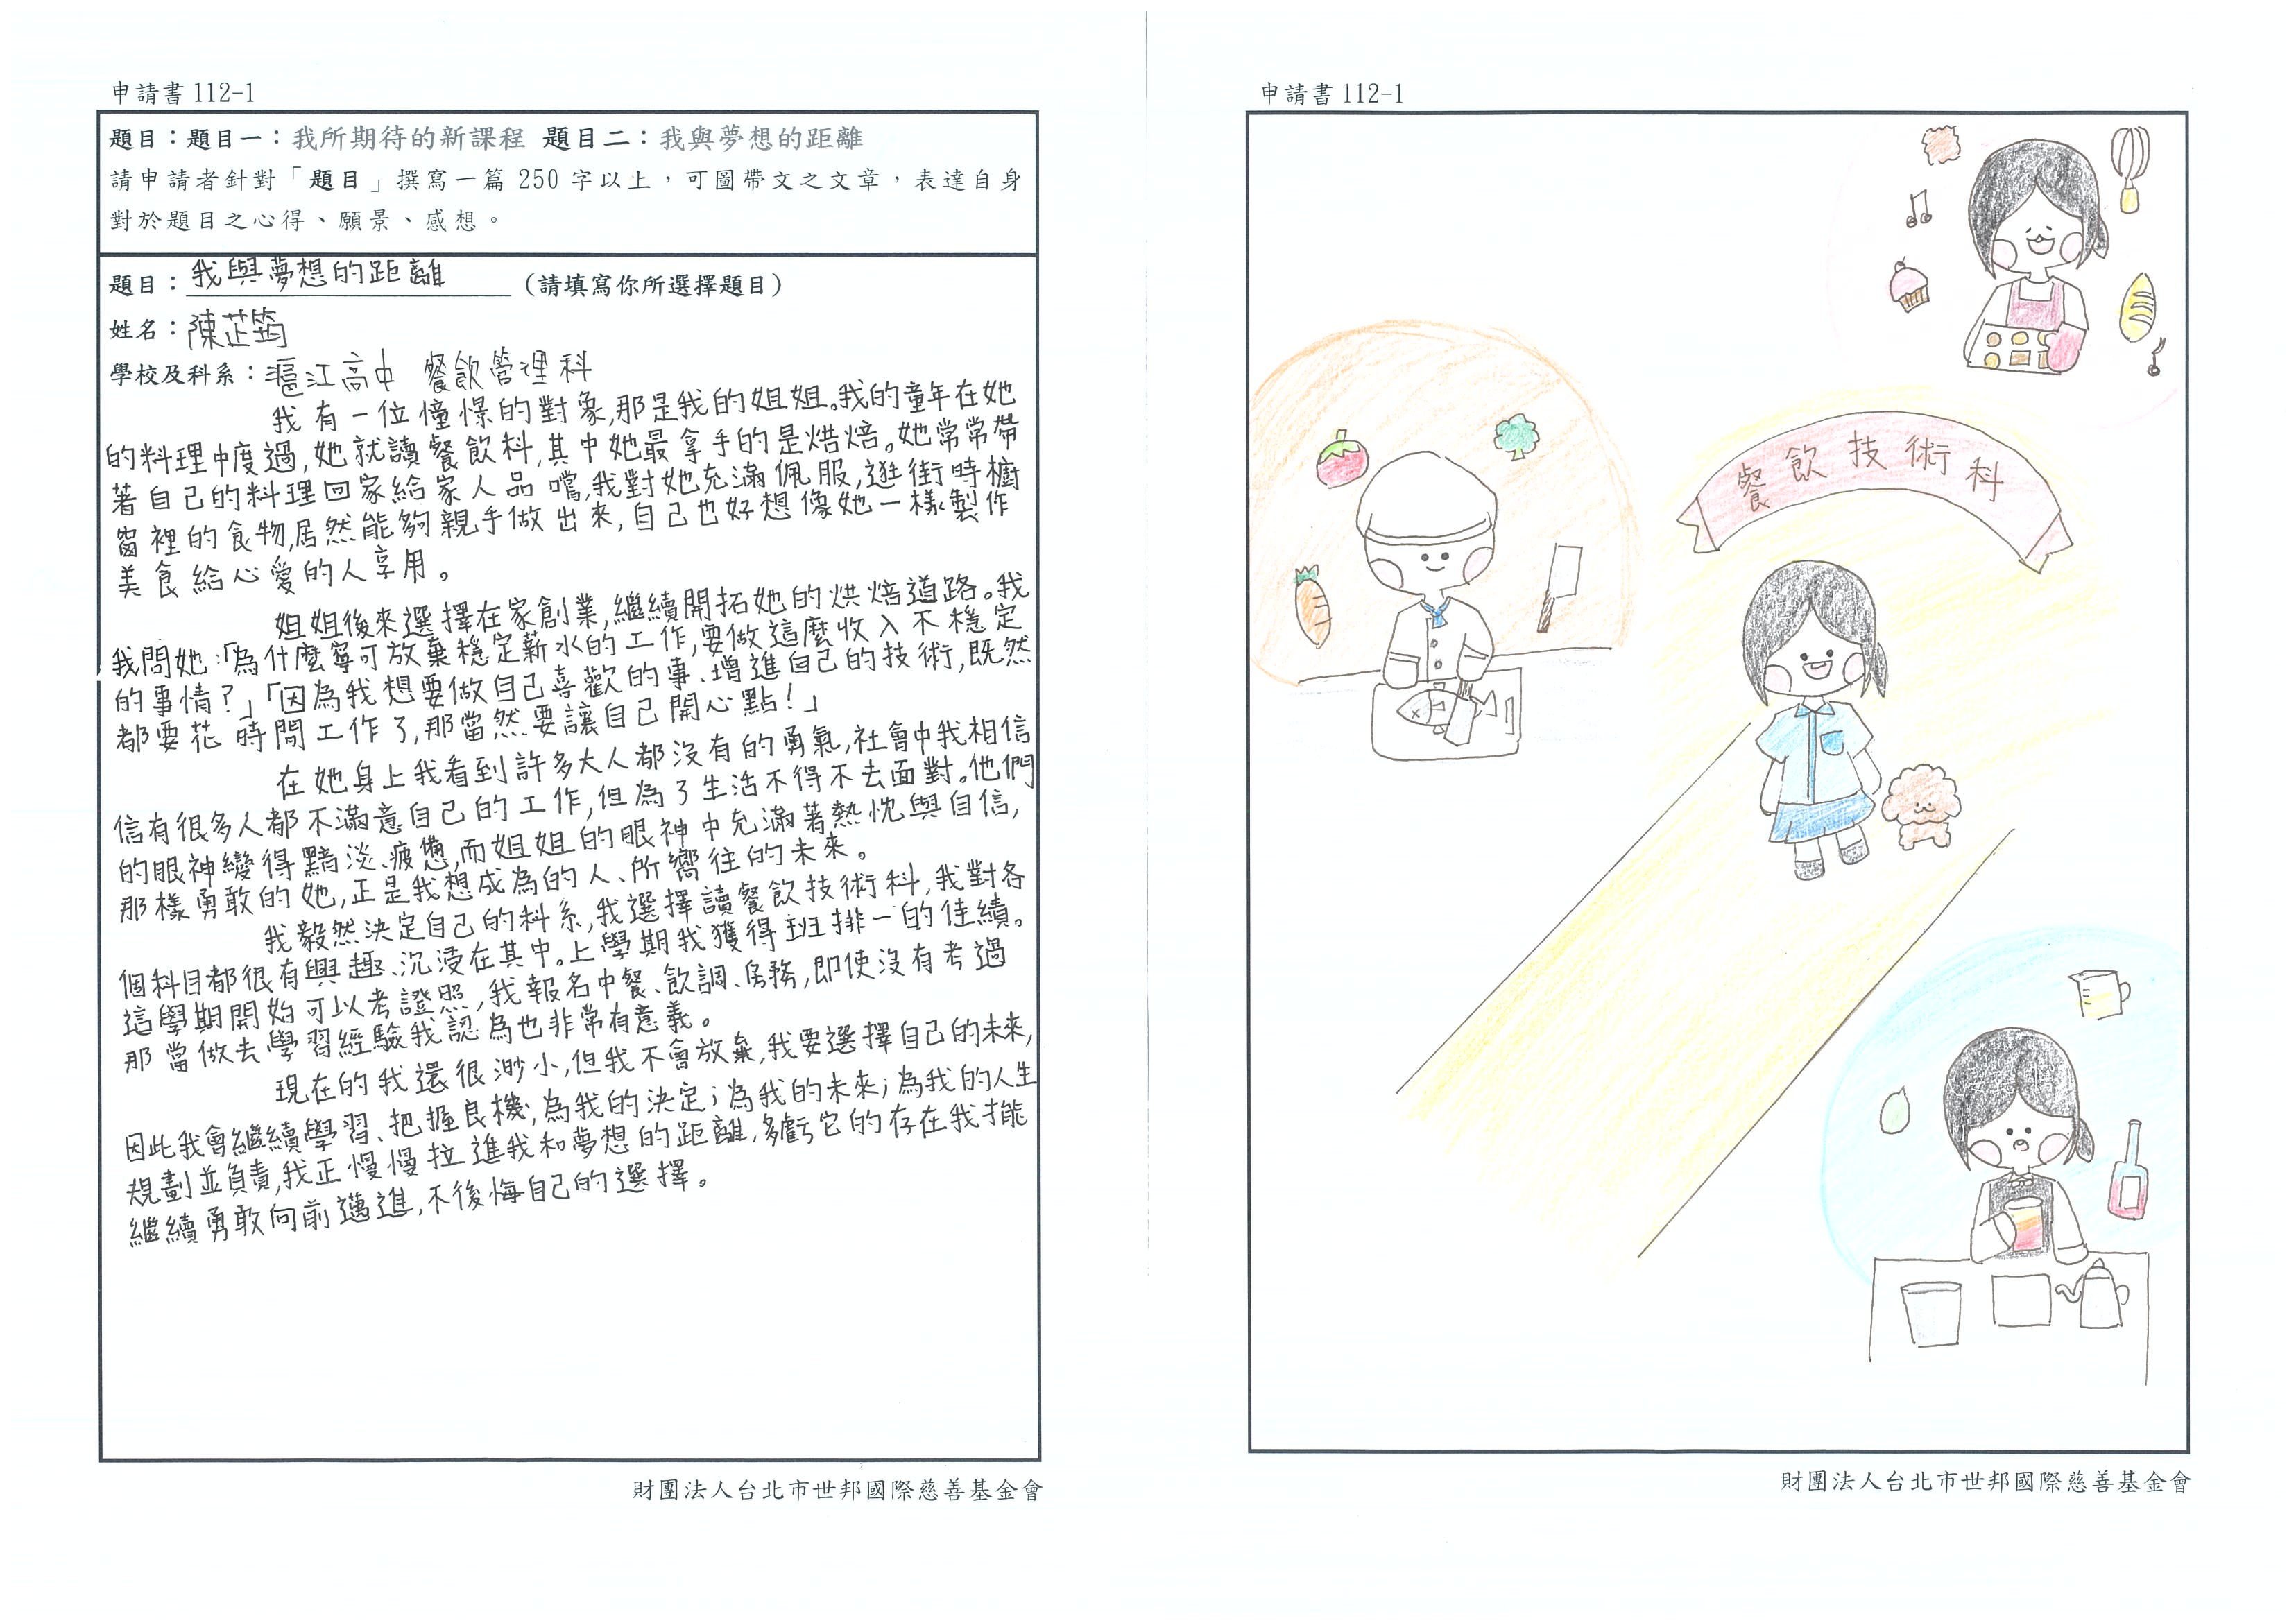 申請書 112-1
題目：題目一：我所期待的新課程 題目二：我與夢想的距離
請申請者針對「題目」撰寫一篇 250 字以上，可圖帶文之文章，表達自身
對於題目之心得、願景、感想。
題目：我與夢想的距離（請填寫你所選擇題目）
姓名：陳芷筠
學校及科系：滬江高中 餐飲管理科
我有一位憧憬的對象,那是我的姐姐。我的童年在她
的料理中度過,她就讀餐飲科,其中她最拿手的是烘焙。她常常帶
著自己的料理回家給家人品嚐,我對她充滿佩服,逛街時櫥
窗裡的食物,居然能夠親手做出來,自己也好想像她一樣製作
美食給心愛的人享用。
姐姐後來選擇在家創業,繼續開拓她的烘焙道路。我
我問她:「為什麼寧可放棄穩定薪水的工作,要做這麼收入不穩定
的事情?」「因為我想要做自己喜歡的事、增進自己的技術,既然
都要花時間工作了,那當然要讓自己開心點!」
在她身上我看到許多大人都沒有的勇氣,社會中我相信
信有很多人都不滿意自己的工作,但為了生活不得不去面對。他們
的眼神變得黯淡、疲憊,而姐姐的眼神中充滿著熱忱與自信,
那樣勇敢的她,正是我想成為的人、所嚮往的未來。
我毅然決定自己的科系,我選擇讀餐飲技術科,我對各
個科目都很有興趣、沉浸在其中。上學期我獲得班排一的佳績。
這學期開始可以考證照,我報名中餐、飲調、房務,即使沒有考過
那當做去學習經驗我認為也非常有意義。
現在的我還很渺小,但我不會放棄,我要選擇自己的未來,
因此我會繼續學習、把握良機,為我的決定;為我的未來;為我的人生
規劃並負責,我正慢慢拉進我和夢想的距離,多虧它的存在我才能
繼續勇敢向前邁進,不後悔自己的選擇。
財團法人台北市世邦國際慈善基金會
申請書 112-1
餐飲技術科
財團法人台北市世邦國際慈善基金會